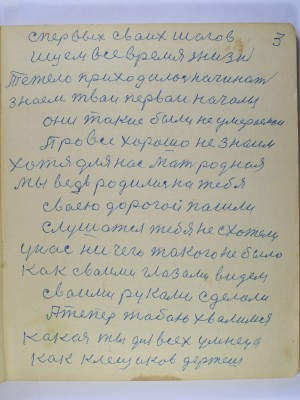 3
с первых своих шагов
ищем все время жизни
Тетело приходилос начинат
знаем тваи первои началы
они такие были не умер
Про все хорошо не знаим
хотя для нас мат родная
мы ведь родилис на тебя
сваею дорогой пашли
слушатся тебя не схотели
унас ни чего такого не было
как сваими глазами видем
сваими руками сделали
Атепер табаю хвалимся
какая ты для всех умнеца
как клещиков держеш